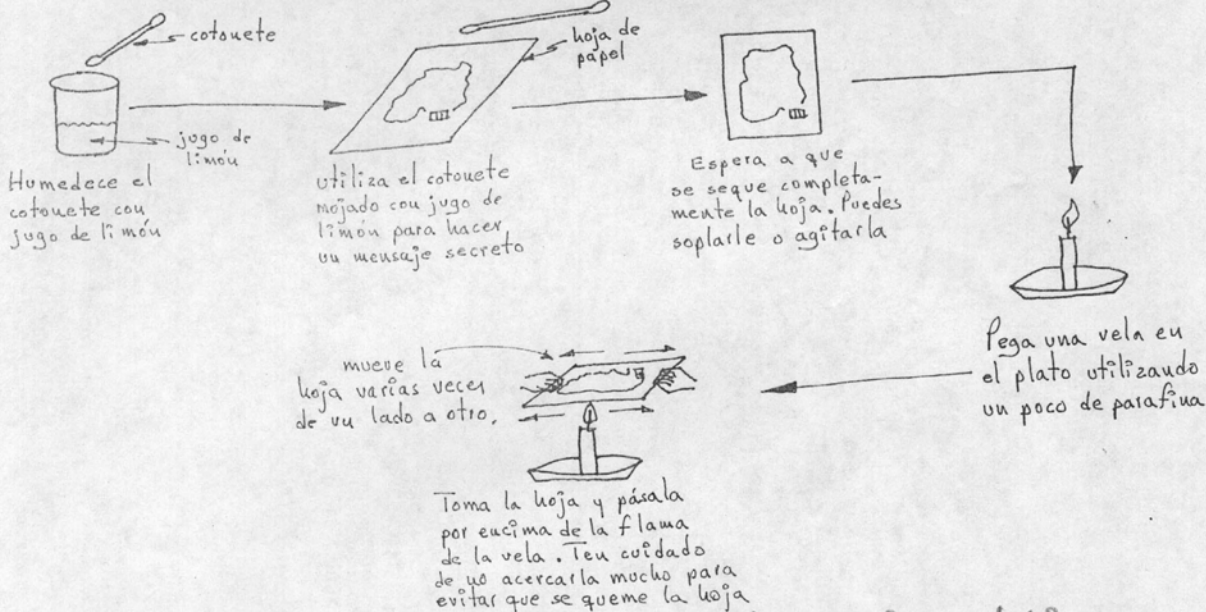 cotonete
hoja de
papel
jugo de
limón
Humedece el
cotonete con
jugo de limón
utiliza el cotonete
mojado con jugo de
limón para hacer
un mensaje secreto
Espera a que
se seque completa-
mente la hoja. Puedes
soplarle o agitarla
Pega una vela en
el plato utilizando
un poco de parafina
mueve la
hoja varias veces
de un lado a otro.
Toma la hoja y pásala
por encima de la flama
de la vela. Ten cuidado
de no acercarla mucho para
evitar que se queme la hoja